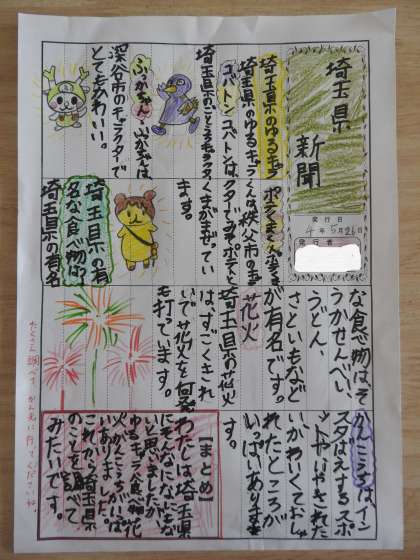 埼玉県
新聞
発行日
4年5月26日
発行者
埼玉県のゆるキャラ
埼玉県のゆるキャラ
コバトン コバトンは、
埼玉県のことり
ふっかちゃん ふっかちゃんは
深谷市のキャラクターで
とてもかわいい。
ポテくまくん ポテくま
くんは秩父市の
クターでみそポテトと
くまがまざってい
ます。
埼玉県の有
名な食べ物は
埼玉県の有名
な食べ物はそ
うかせんべい、
うどん、
さといもなど
が有名です。
花火
埼玉県の花火
は、すごくきれ
いで花火を何発
も打っています。
かんこうちは、イン
スタばえするスポ
ットやいやされた
いかわいくておしゃ
れたところが
いっぱいありま
す。
【まとめ】
わたしは埼玉県
にそんなになにもな
いと思いましたが
ゆるキャラ、食べ物、花
火、かんこうちがいっぱ
いありました。
これから埼玉県
のことを調べて
みたいです。
たくさん調べて、かん光に行ってくださいね。